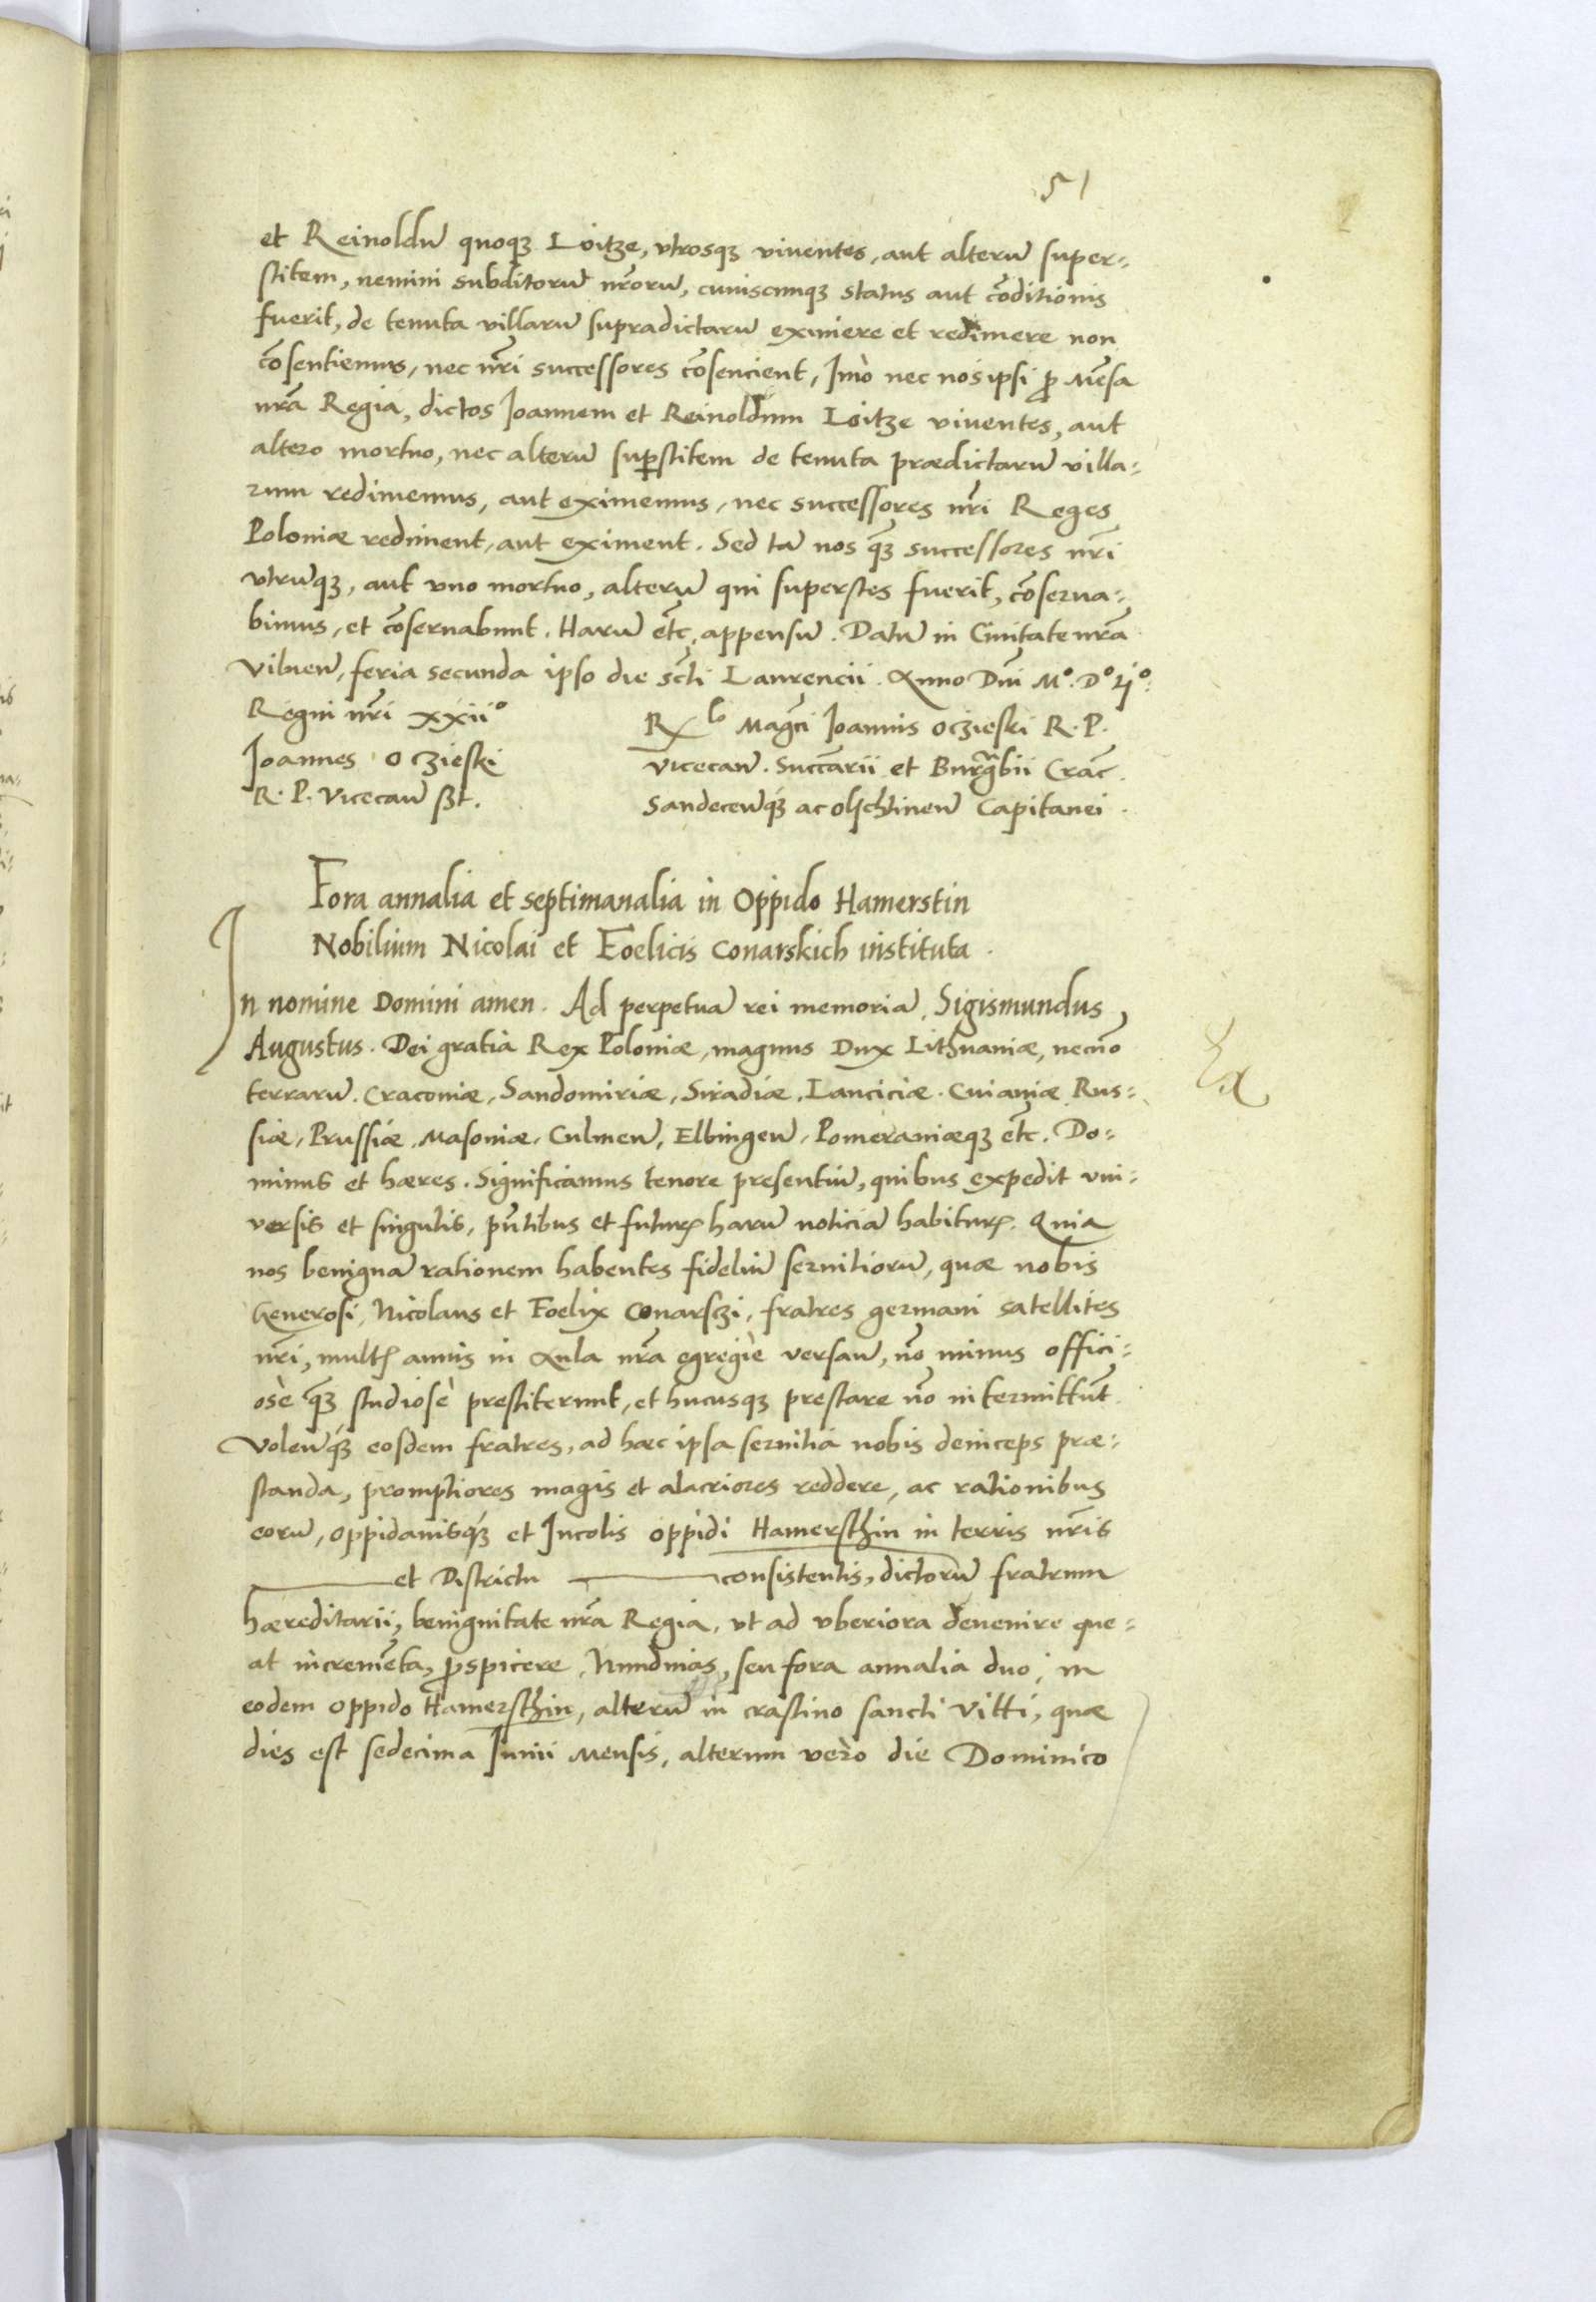 51
et Reinoldū quoqȝ Loitze, vtrosqȝ viuentes, aut alterū super-
stitem, nemini subditorū nr̃orū, cuiuscunqȝ status aut cōditionis
fuerit, de tenuta villarū supradictarū eximere et redimere non
cōsentiemus, nec nr̃i successores cōsencient, Imò nec nos ipsi ꝓ Mēsa
nr̃a Regia, dictos Joannem et Reinoldum Loitze viuentes, aut
altero mortuo, nec alterū suꝑstitem de tenuta prædictarū villa-
rum redimemus, aut eximemus, nec successores nr̃i Reges
Poloniæ rediment, aut eximent. Sed tā nos q̃ȝ successores nr̃i
vtrūqȝ, aut vno mortuo, alterū qui superstes fuerit, cōserua-
bimus, et cōseruabunt. Harū etc̃. appensū. Datū in Ciuitate nr̃a
Vilnen̄, feria secunda ipso die sc̃ti Laurencii. Anno Dn̄i Mº. Dº. Ljº.
Regni nr̃i xxiiº
Joannes Oczieski
R. P. Vicecan̄ sst.
Rlo Magc̃i Joannis Oczieski R. P.
Vicecan̄. Succ̃arii et Burgr̃abii Crac̃.
Sandecen̄qȝ ac Olschtinen̄ Capitanei.
Fora annalia et septimanalia in Oppido Hamerstin
Nobilium Nicolai et Foelicis Conarskich instituta.
In nomine Domini amen. Ad perpetuā rei memoriā. Sigismundus
Augustus. Dei gratia Rex Poloniæ, magnus Dux Lithuaniæ, necn̄o
terrarū. Cracouiæ, Sandomiriæ, Siradiæ, Lanciciæ. Cuiauiæ Rus-
siæ, Prussiæ, Masouiæ, Culmen̄, Elbingen̄, Pomeraniæqȝ etc̃. Do-
minus et hæres. Significamus tenore presentiū, quibus expedit vni-
versis et singulis, pn̄tibus et futuꝝ harū noticiā habituꝝ. Quia
nos benignā rationem habentes fideliū seruitiorū, quæ nobis
Generosi, Nicolaus et Foelix Conarsczi, fratres germani satellites
nr̃i, multꝭ annis in Aula nr̃a egregiè versan̄, nō minus offici-
osè q̃ȝ studiosè prestiterunt, et hucusqȝ prestare nō intermittūt.
Volen̄qȝ eosdem fratres, ad hæc ipsa seruitia nobis deinceps præ-
standa, promptiores magis et alacriores reddere, ac rationibus
eorū, oppidanisqȝ et Incolis oppidi Hamersthin in terris nr̃is
et Districtu consistentis, dictorū fratrum
hæreditarii, benignitate nr̃a Regia, vt ad vberiora deuenire que-
at incremēta, ꝓspicere, Nundinas, seu fora annalia duo, in
eodem oppido Hamersthin, alterū in crastino sancti Vitti, quæ
dies est sedecima Junii Mensis, alterum verò die Dominico